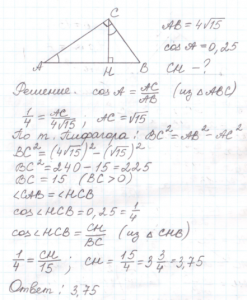 C
AB = 4√15
cos A = 0,25
CH - ?
A H B
Решение. cos A = AC/AB (из △ABC)
1/4 = AC/4√15 ; AC = √15
По т. Пифагора: BC² = AB² - AC²
BC² = (4√15)² - (√15)²
BC² = 240 - 15 = 225
BC = 15 (BC > 0)
∠CAB = ∠HCB
cos∠HCB = 0,25 = 1/4
cos∠HCB = CH/BC (из △CHB)
1/4 = CH/15 ; CH = 15/4 = 3 3/4 = 3,75
Ответ: 3,75